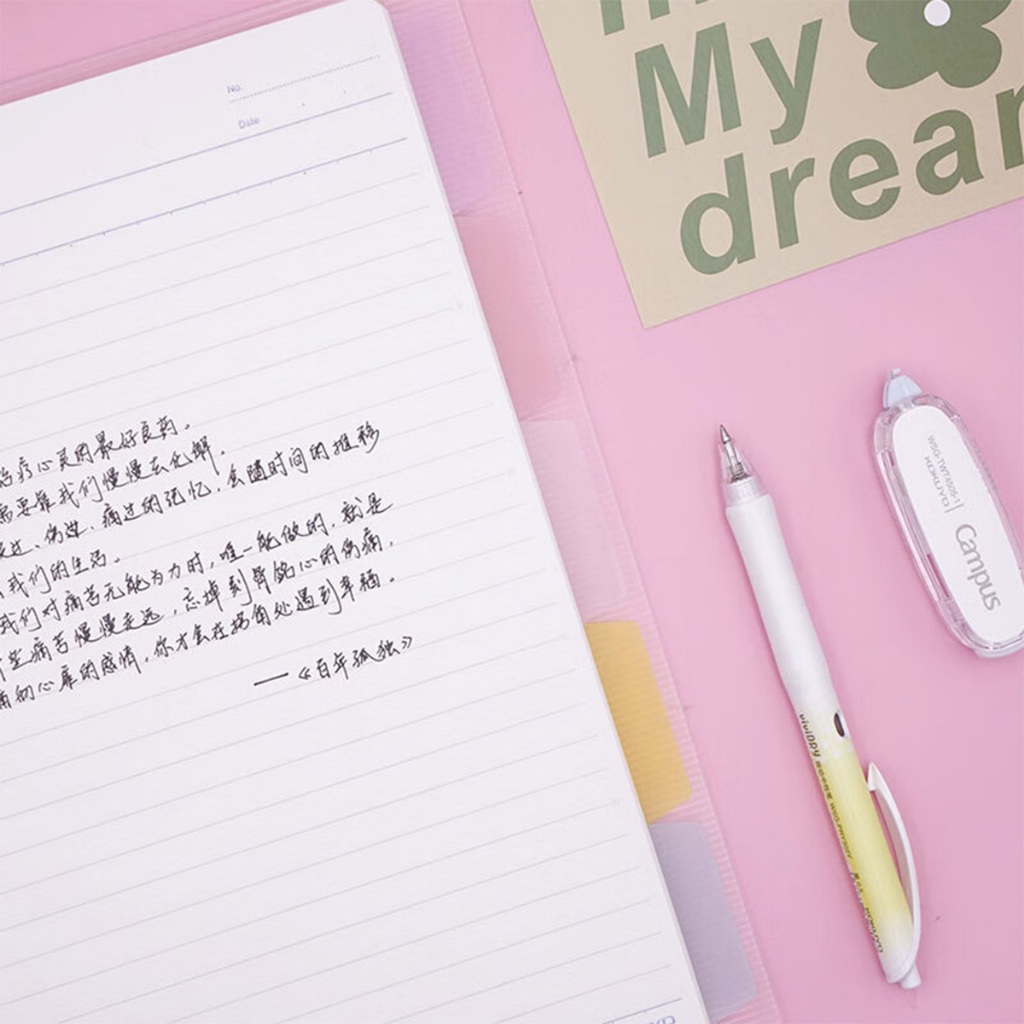 No.
Date
治疗心灵的最好良药。
需要靠我们慢慢去化解.
过、伤过、痛过的记忆,会随时间的推移
我们的生活。
我们对痛苦无能为力时,唯一能做的,就是
些痛苦慢慢走远,忘掉刻骨铭心的伤痛,
痛彻心扉的感情,你才会在拐角处遇到幸福。
——《百年孤独》
My
dream
WSG-TWT4505-1
KOKUYO
Campus
ViviDRY